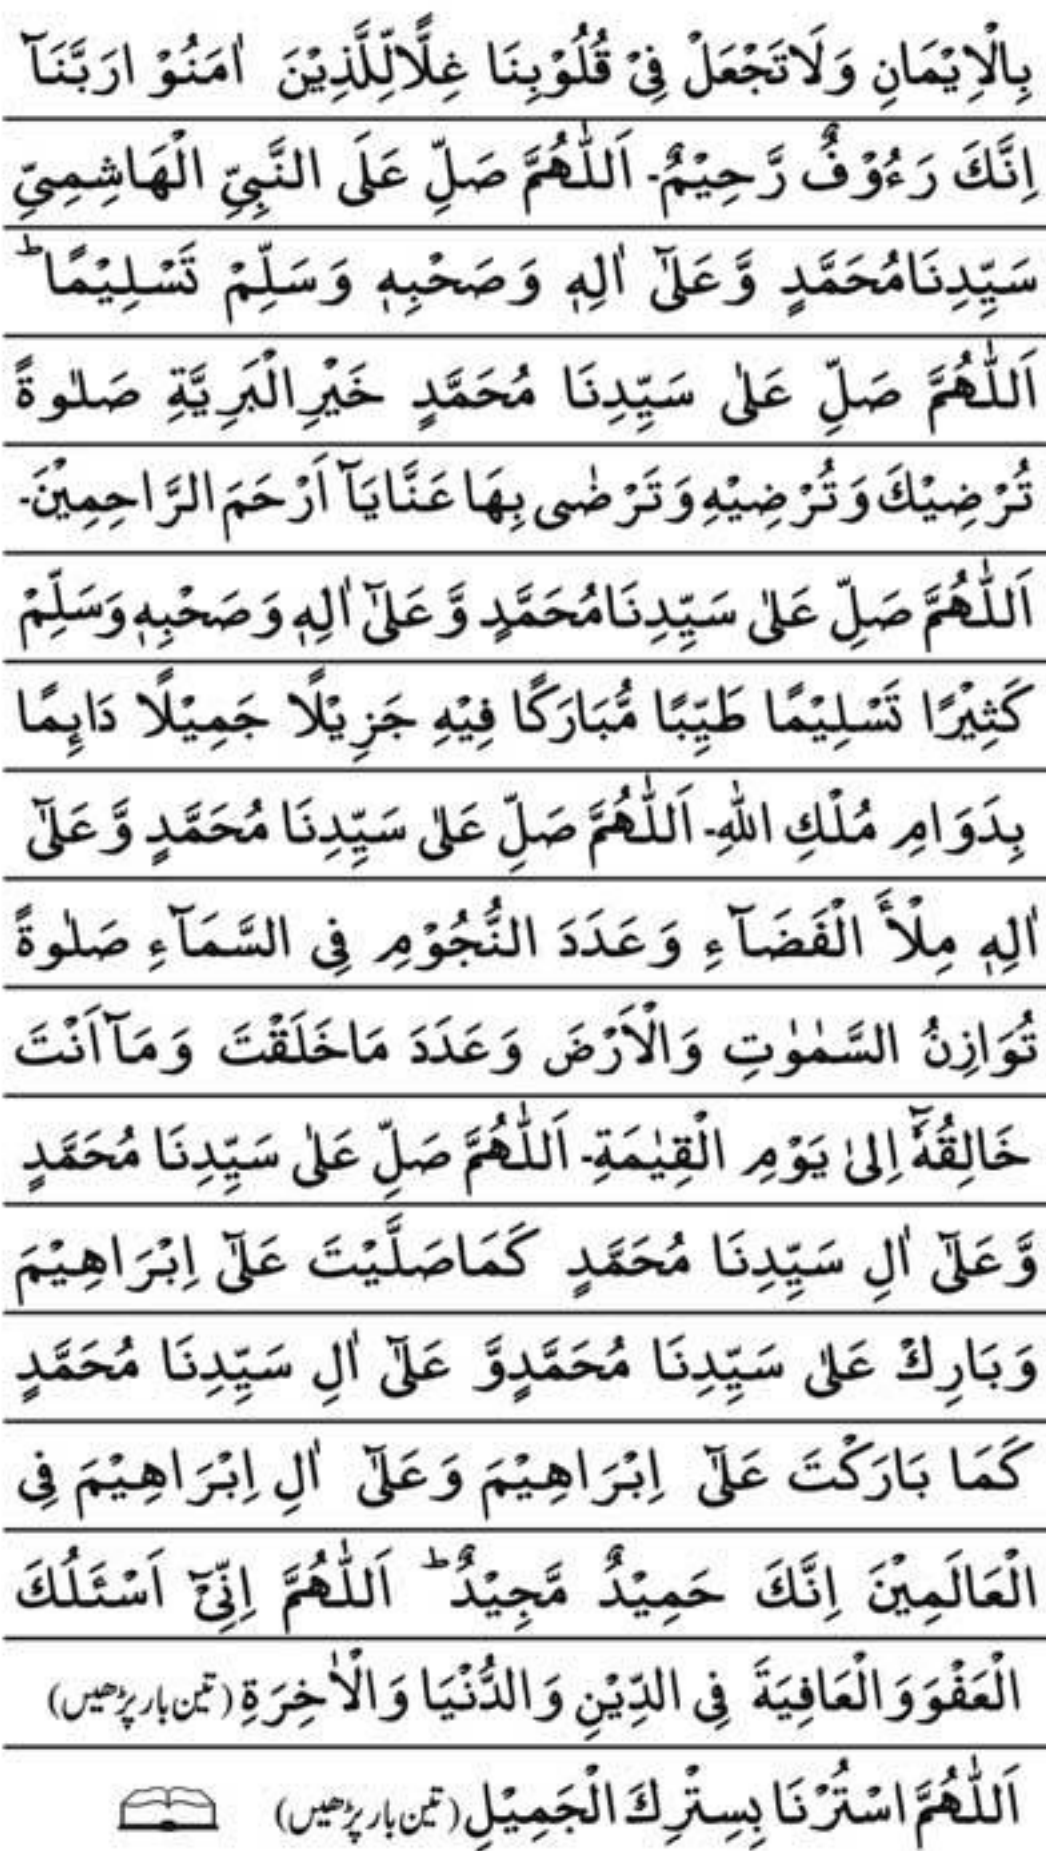 بِالْاِيْمَانِ وَلَاتَجْعَلْ فِیْ قُلُوْبِنَا غِلًّالِّلَّذِيْنَ اٰمَنُوْ ارَبَّنَآ
اِنَّكَ رَءُوْفٌ رَّحِيْمٌ۔ اَللّٰهُمَّ صَلِّ عَلَی النَّبِیِّ الْهَاشِمِیِّ
سَيِّدِنَامُحَمَّدٍ وَّعَلٰۤی اٰلِهٖ وَصَحْبِهٖ وَسَلِّمْ تَسْلِيْمًا ؕ
اَللّٰهُمَّ صَلِّ عَلٰی سَيِّدِنَا مُحَمَّدٍ خَيْرِالْبَرِيَّةِ صَلٰوةً
تُرْضِيْكَ وَتُرْضِيْهِ وَتَرْضٰی بِهَا عَنَّايَآ اَرْحَمَ الرَّاحِمِيْنَ۔
اَللّٰهُمَّ صَلِّ عَلٰی سَيِّدِنَامُحَمَّدٍ وَّعَلٰۤی اٰلِهٖ وَصَحْبِهٖ وَسَلِّمْ
كَثِيْرًا تَسْلِيْمًا طَيِّبًا مُّبَارَكًا فِيْهِ جَزِيْلًا جَمِيْلًا دَايِٕمًا
بِدَوَامِ مُلْكِ اللهِ۔ اَللّٰهُمَّ صَلِّ عَلٰی سَيِّدِنَا مُحَمَّدٍ وَّعَلٰۤی
اٰلِهٖ مِلْأَ الْفَضَآءِ وَعَدَدَ النُّجُوْمِ فِی السَّمَآءِ صَلٰوةً
تُوَازِنُ السَّمٰوٰتِ وَالْاَرْضَ وَعَدَدَ مَاخَلَقْتَ وَمَآاَنْتَ
خَالِقُهٗۤ اِلٰی يَوْمِ الْقِيٰمَةِ۔ اَللّٰهُمَّ صَلِّ عَلٰی سَيِّدِنَا مُحَمَّدٍ
وَّعَلٰۤی اٰلِ سَيِّدِنَا مُحَمَّدٍ كَمَاصَلَّيْتَ عَلٰۤی اِبْرَاهِيْمَ
وَبَارِكْ عَلٰی سَيِّدِنَا مُحَمَّدٍوَّ عَلٰۤی اٰلِ سَيِّدِنَا مُحَمَّدٍ
كَمَا بَارَكْتَ عَلٰۤی اِبْرَاهِيْمَ وَعَلٰۤی اٰلِ اِبْرَاهِيْمَ فِی
الْعَالَمِيْنَ اِنَّكَ حَمِيْدٌ مَّجِيْدٌ ؕ اَللّٰهُمَّ اِنِّیْۤ اَسْئَلُكَ
الْعَفْوَوَ الْعَافِيَةَ فِی الدِّيْنِ وَالدُّنْيَا وَالْاٰخِرَةِ (تین بار پڑھیں)
اَللّٰهُمَّ اسْتُرْنَا بِسِتْرِكَ الْجَمِيْلِ (تین بار پڑھیں)